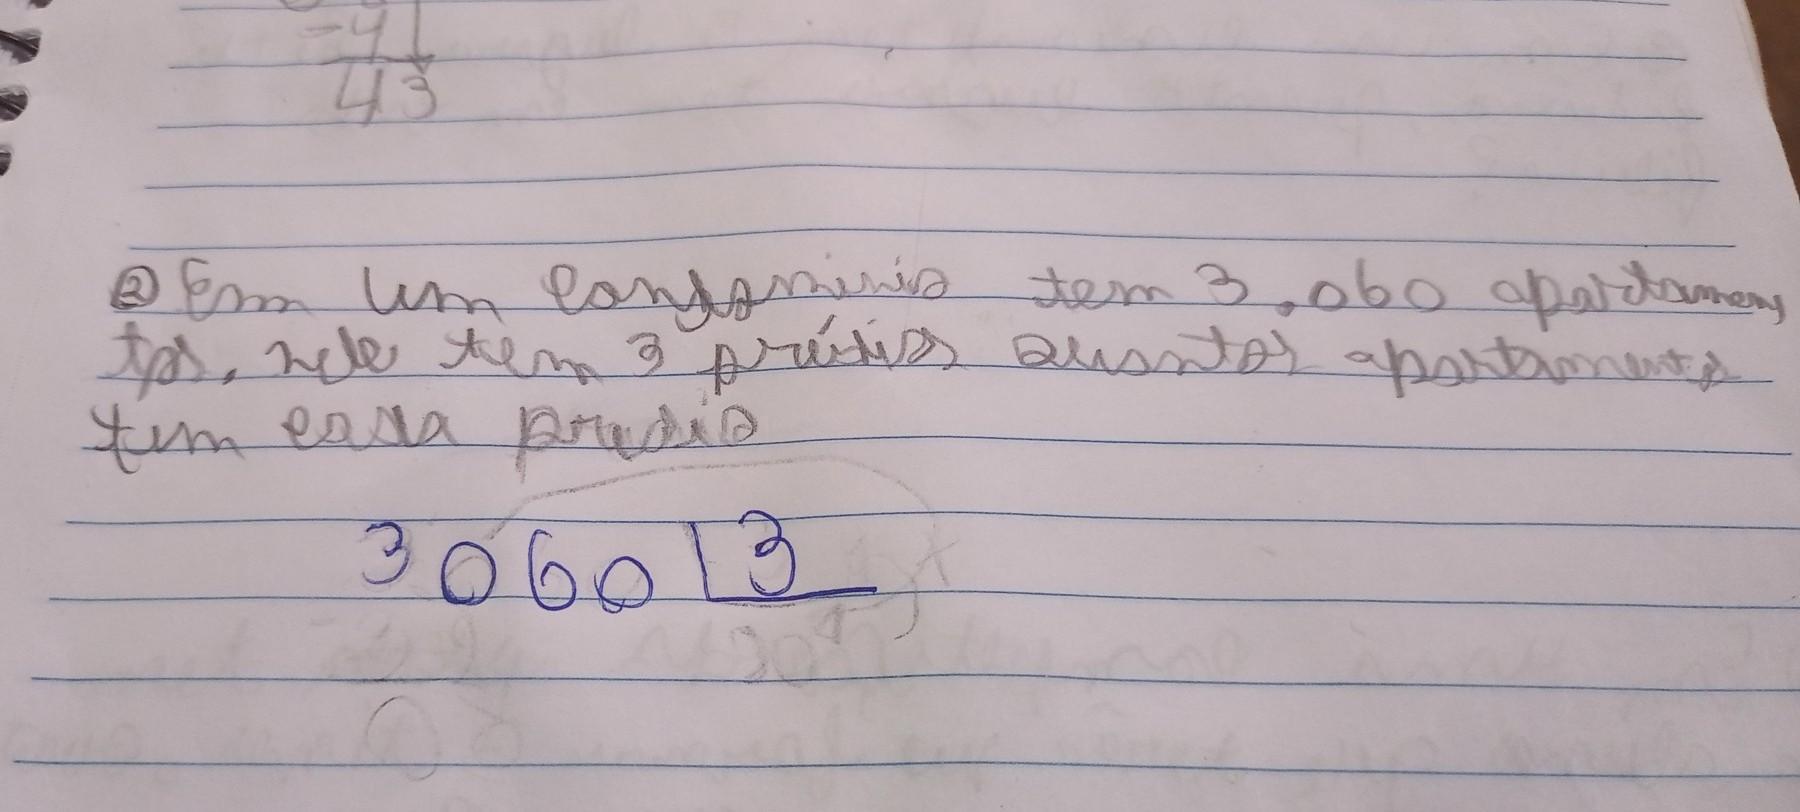 -4
43
② Em um condominio tem 3.060 apartamen
tos, nele tem 3 prédios quantos apartamentos
tem cada predio
3060 3